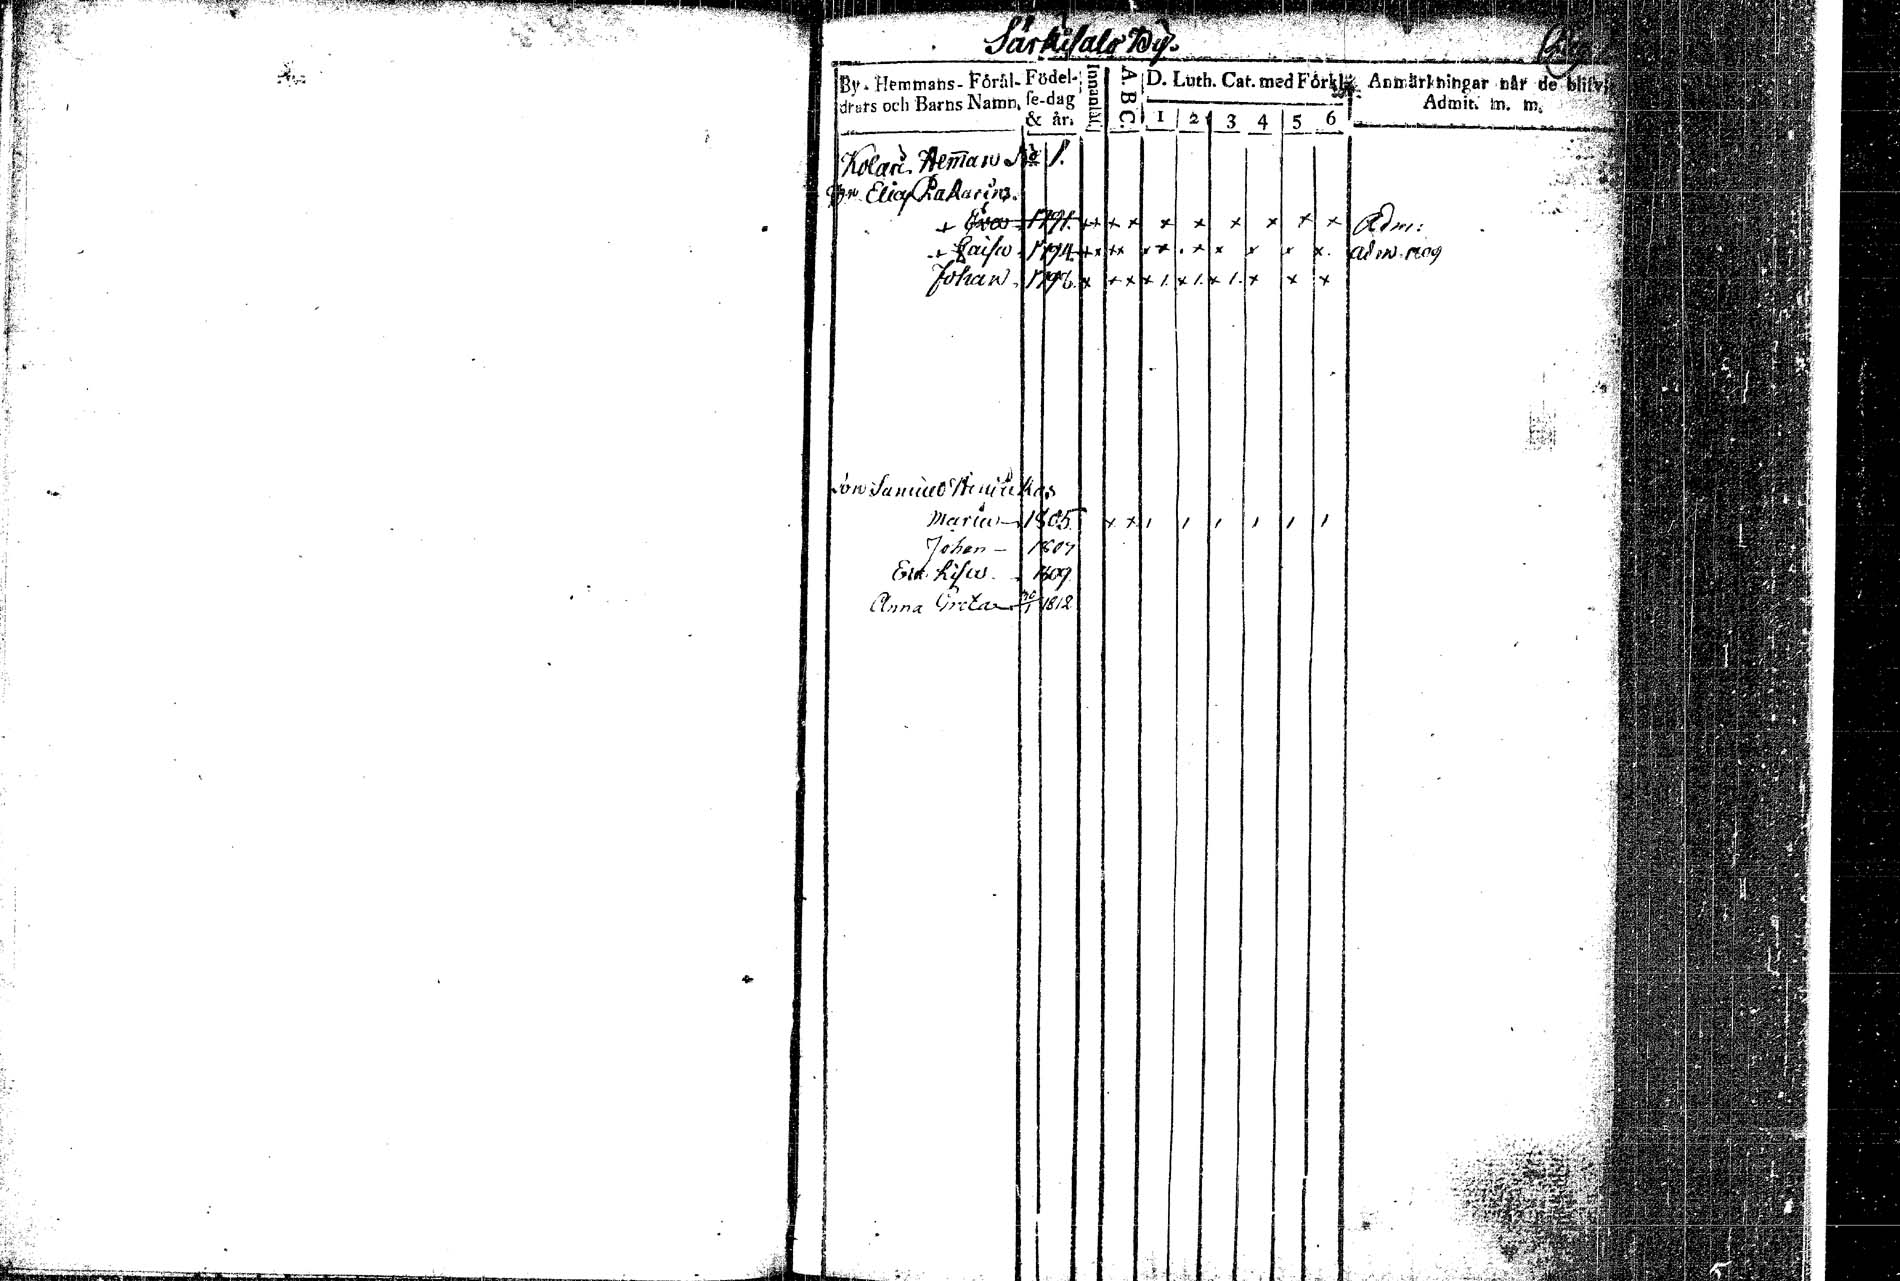 Särkisalo By.
By - Hemmans - Föräl-
drars och Barns Namn.
Födel-
se-dag
& år.
Innanläs.
A B C.
D. Luth. Cat. med Förkl.
1 2 3 4 5 6
Anmärkningar når de blifvi
Admit. m. m.
Kolari Hem̄an No 1.
Elias
+ Eva 1791. ++ + × × × × × × × Adm:
+ Caisa 1794 adm. 1809
Johan 1796.
Samuel Henrikas
Maria — 1805 × × / / / / / /
Johan — 1807
Lisa 1809
Anna Greta 1812